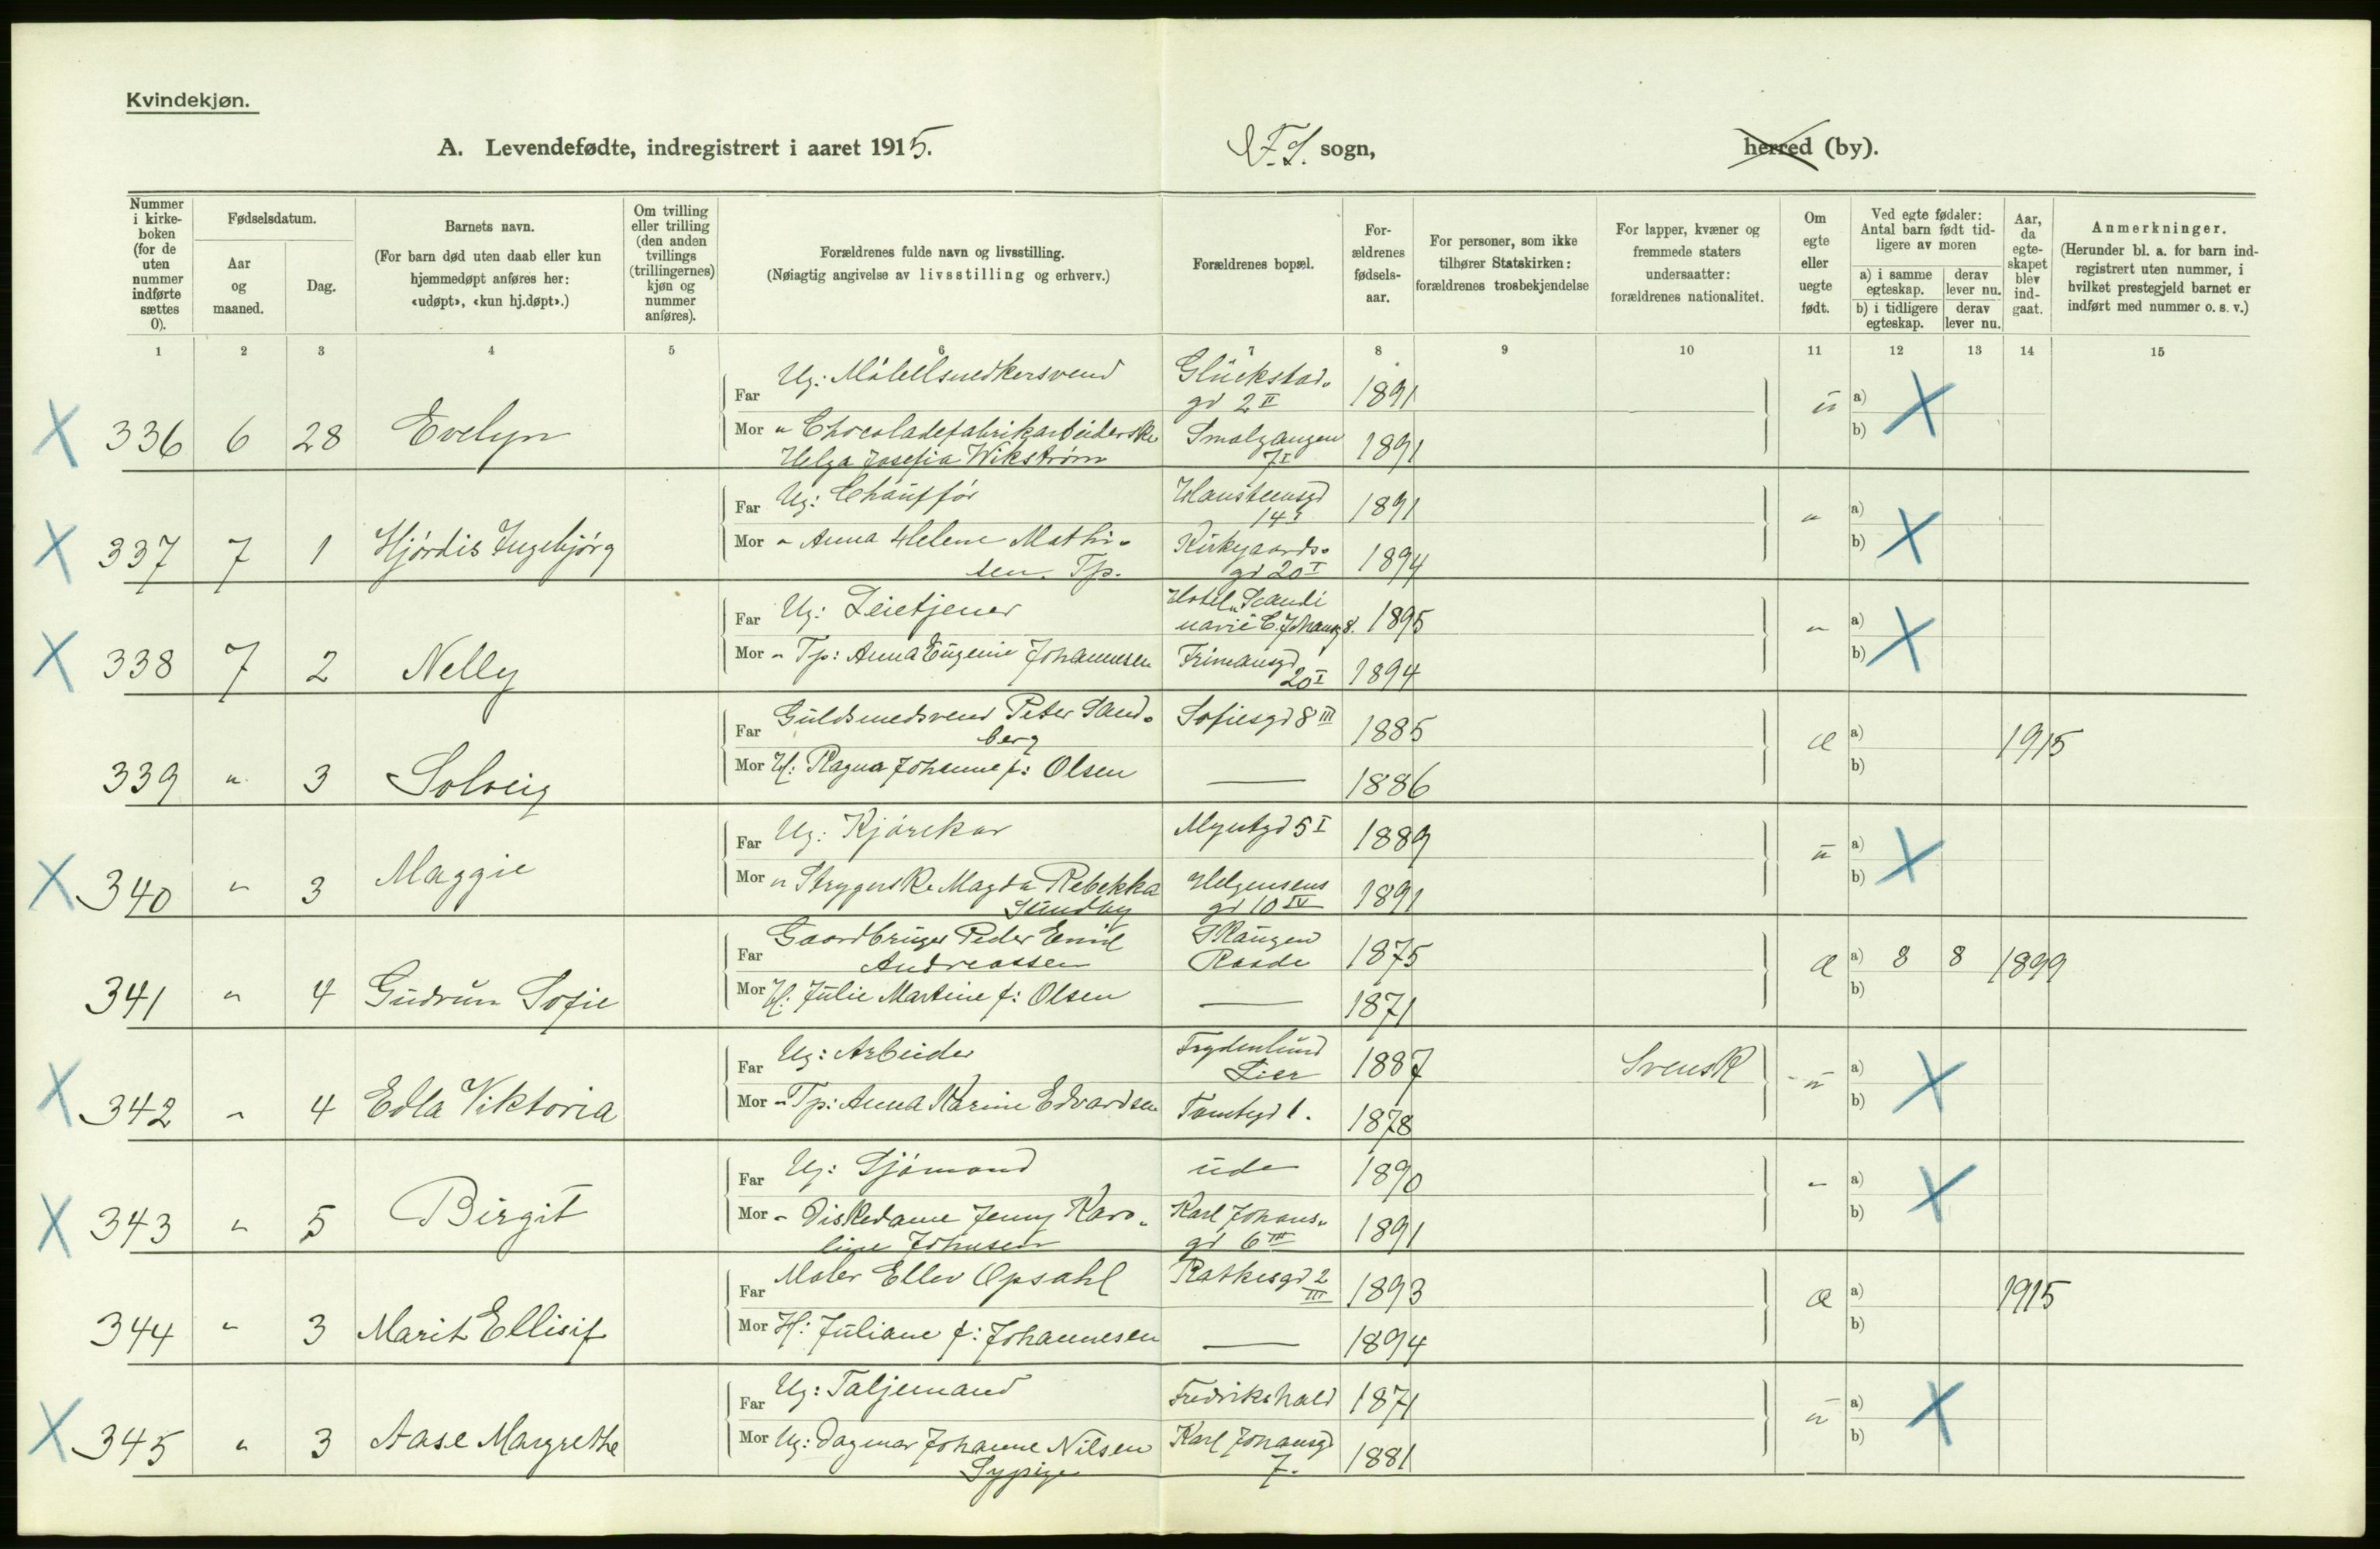 Kvindekjøn.
A. Levendefødte, indregistrert i aaret 1915.
F. S. sogn,
herred (by).
Nummer i kirke-boken (for de uten nummer indførte sættes 0).
Fødselsdatum.
Aar og maaned.
Dag.
Barnets navn.
(For barn død uten daab eller kun hjemmedøpt anføres her: «udøpt», «kun hj.døpt».)
Om tvilling eller trilling (den anden tvillings (trillingernes) kjøn og nummer anføres).
Forældrenes fulde navn og livsstilling.
(Nøiagtig angivelse av livsstilling og erhverv.)
Forældrenes bopæl.
For-ældrenes fødsels-aar.
For personer, som ikke tilhører Statskirken: forældrenes trosbekjendelse
For lapper, kvæner og fremmede staters undersaatter: forældrenes nationalitet.
Om egte eller uegte født.
Ved egte fødsler: Antal barn født tid-ligere av moren
a) i samme egteskap.
derav lever nu.
b) i tidligere egteskap.
derav lever nu.
Aar, da egte-skapet blev ind-gaat.
Anmerkninger.
(Herunder bl. a. for barn ind-registrert uten nummer, i hvilket prestegjeld barnet er indført med nummer o. s. v.)
1 2 3 4 5 6 7 8 9 10 11 12 13 14 15
X 336 6 28 Evelyn
Far Ug: Möbelsnedkersvend Glückstad-
gd 2 II 1891 u a) X
Mor " Chocoladefabrikarbeiderske Smalgangen 1891 b)
Helga Josefia Wikstrøm 7 I
X 337 7 1 Hjørdis Ingebjørg
Far Ug: Chauffør Hansteensgd
14 I 1891 " a) X
Mor " Anna Helene Mathi- Kirkegaards-
sen. Tp. gd 20 I 1894 b)
X 338 7 2 Nelly
Far Ug: Leietjener Hotel "Scandi
navie" C. Johansg 8. 1895 " a) X
Mor " Tp: Anna Eugenie Johannesen Frimansgd
20 I 1894 b)
339 " 3 Solveig
Far Guldsmedsvend Peter Sand- Sofiesgd 8 III 1885 æ a) 1915
berg
Mor H: Ragna Johanne f: Olsen — 1886 b)
X 340 " 3 Maggie
Far Ug: Kjørekar Myntgd 5 I 1889 u a) X
Mor " Strygerske Magda Rebekka Helgesens
Sundby gd 10 IV 1891 b)
341 " 4 Gudrun Sofie
Far Gaardbruger Peder Emil Skaugen
Andreassen Raade 1875 æ a) 8 8 1899
Mor H: Julie Martine f: Olsen — 1871 b)
X 342 " 4 Edla Viktoria
Far Ug: Arbeider Frydenlund
Lier 1887 Svensk u a) X
Mor " Tp: Anna Karine Edvardsen Tomtegd 1. 1878 b)
X 343 " 5 Birgit
Far Ug: Sjømand ude 1890 " a) X
Mor " Diskedame Jenny Karo- Karl Johans-
line Johnsen gd 6 III 1891 b)
344 " 3 Marit Ellisif
Far Maler Ellev Opsahl Rathkesgd 2
III 1893 æ a) 1915
Mor H: Juliane f: Johannesen — 1894 b)
X 345 " 3 Aase Margrethe
Far Ug: Taljemand Fredrikshald 1871 u a) X
Mor Ug: Dagmar Johanne Nilsen Karl Johansgd
Sypige 7. 1881 b)